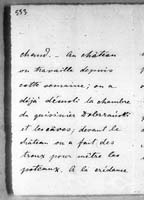 333
chaud. - Au château
on travaille depuis
cette semaine; on a
déjà démoli la chambre
du cuisinier
et les caves; devant le
château on a fait des
trous pour mettre les
poteaux. A la